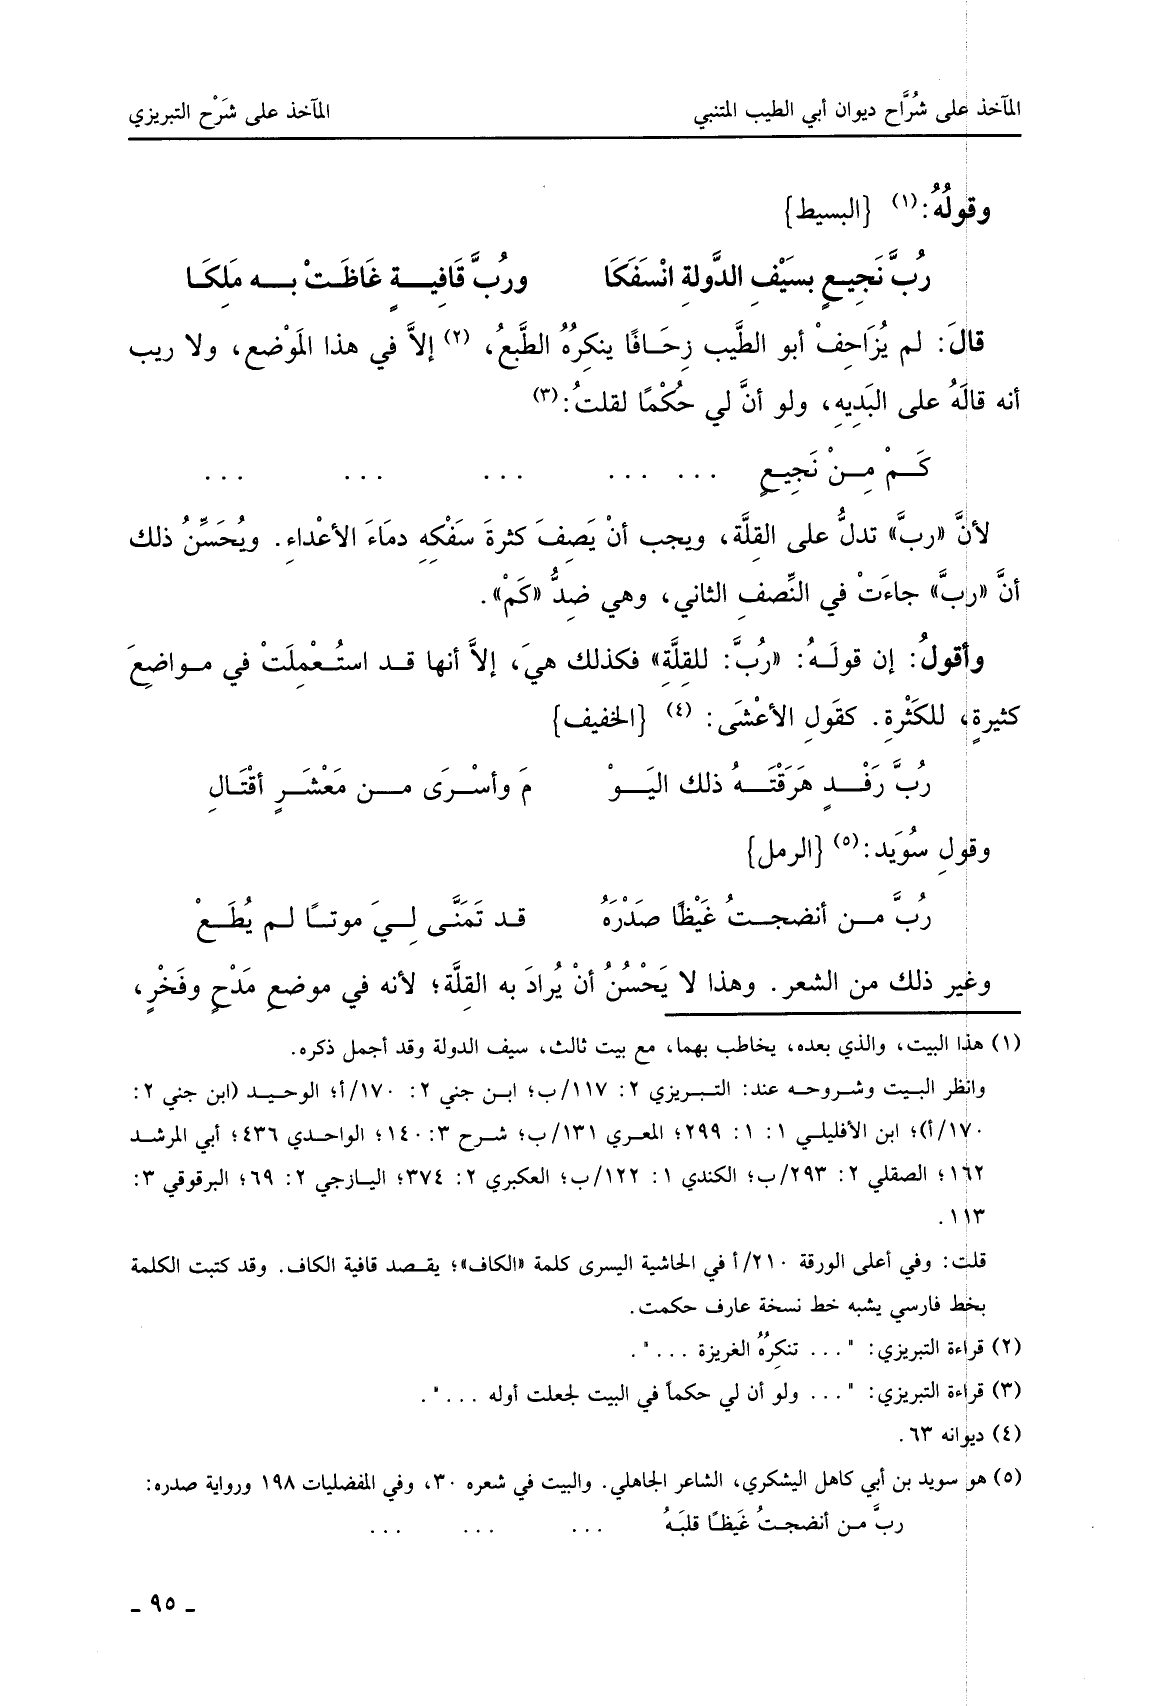 المآخذ على شُرَّاح ديوان أبي الطيب المتنبي المآخذ على شَرْح التبريزي
وقولُهُ:(١) {البسيط}
رُبَّ نَجِيعٍ بسَيْفِ الدَّولةِ انْسَفَكَا ورُبَّ قَافِيةٍ غَاظَتْ به مَلِكَا
قالَ: لم يُزَاحِفْ أبو الطَّيب زِحَافًا ينكِرُهُ الطَّبعُ، (٢) إلاَّ في هذا المَوْضع، ولا ريب
أنه قالَهُ على البَدِيهِ، ولو أنَّ لي حُكْمًا لقلتُ:(٣)
كَمْ مِنْ نَجِيعٍ ... ... ... ... ...
لأنَّ «ربَّ» تدلُّ على القِلَّة، ويجب أنْ يَصِفَ كثرةَ سَفْكِهِ دمَاءَ الأعْداءِ. ويُحَسِّنُ ذلك
أنَّ «ربَّ» جاءَتْ في النِّصفِ الثاني، وهي ضِدُّ «كَمْ».
وأقولُ: إن قولَهُ: «رُبَّ: للقِلَّةِ» فكذلك هيَ، إلاَّ أنها قد استُعْمِلَتْ في مواضِعَ
كثيرةٍ، للكَثْرةِ. كقَولِ الأعْشَى: (٤) {الخفيف}
رُبَّ رَفْدٍ هَرَقْتَهُ ذلك اليَوْ مَ وأسْرَى من مَعْشَرٍ أقْتَالِ
وقولِ سُوَيَد:(٥) {الرمل}
رُبَّ من أنضجتُ غَيْظًا صَدْرَهُ قد تَمَنَّى لِيَ موتًا لم يُطَعْ
وغير ذلك من الشعر. وهذا لا يَحْسُنُ أنْ يُرادَ به القِلَّة؛ لأنه في موضعِ مَدْحٍ وفَخْرٍ،
(١) هذا البيت، والذي بعده، يخاطب بهما، مع بيت ثالث، سيف الدولة وقد أجمل ذكره.
وانظر البيت وشروحه عند: التبريزي ٢: ١١٧/ب؛ ابن جني ٢: ١٧٠/أ؛ الوحيد (ابن جني ٢:
١٧٠/أ)؛ ابن الأفليلي ١: ١: ٢٩٩؛ المعري ١٣١/ب؛ شرح ٣: ١٤٠؛ الواحدي ٤٣٦؛ أبي المرشد
١٦٢؛ الصقلي ٢: ٢٩٣/ب؛ الكندي ١: ١٢٢/ب؛ العكبري ٢: ٣٧٤؛ اليازجي ٢: ٦٩؛ البرقوقي ٣:
١١٣.
قلت: وفي أعلى الورقة ٢١٠/أ في الحاشية اليسرى كلمة «الكاف»؛ يقصد قافية الكاف. وقد كتبت الكلمة
بخط فارسي يشبه خط نسخة عارف حكمت.
(٢) قراءة التبريزي: "... تنكرُهُ الغريزة ...".
(٣) قراءة التبريزي: "... ولو أن لي حكماً في البيت لجعلت أوله ...".
(٤) ديوانه ٦٣.
(٥) هو سويد بن أبي كاهل اليشكري، الشاعر الجاهلي. والبيت في شعره ٣٠، وفي المفضليات ١٩٨ ورواية صدره:
ربَّ من أنضجتُ غَيظًا قلبَهُ ... ... ...
ـ ٩٥ ـ